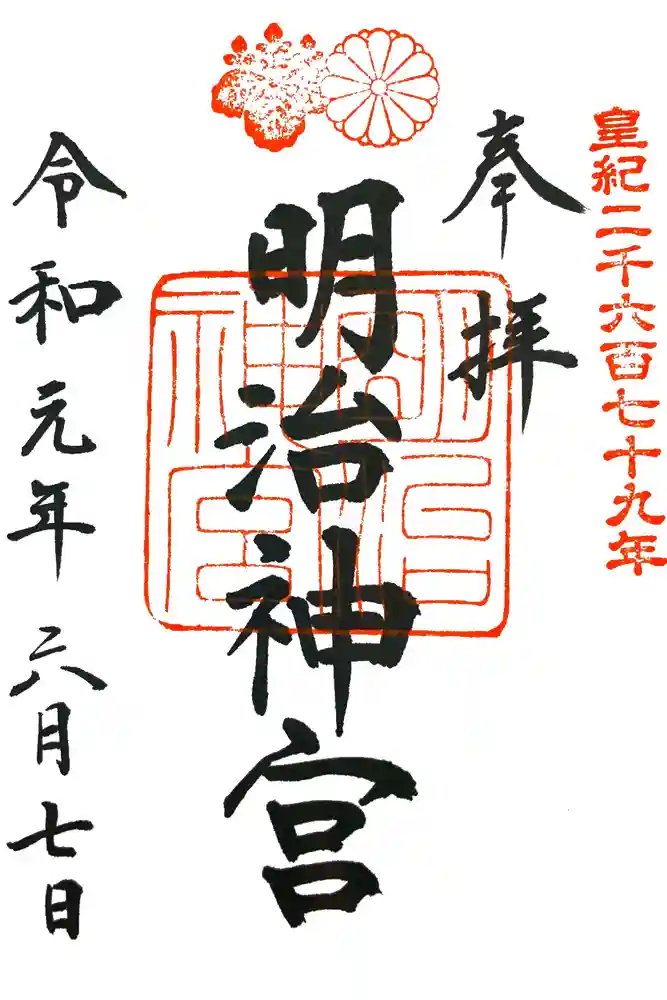 皇紀二千六百七十九年
奉拝
明治神宮
明治神宮
令和元年六月七日